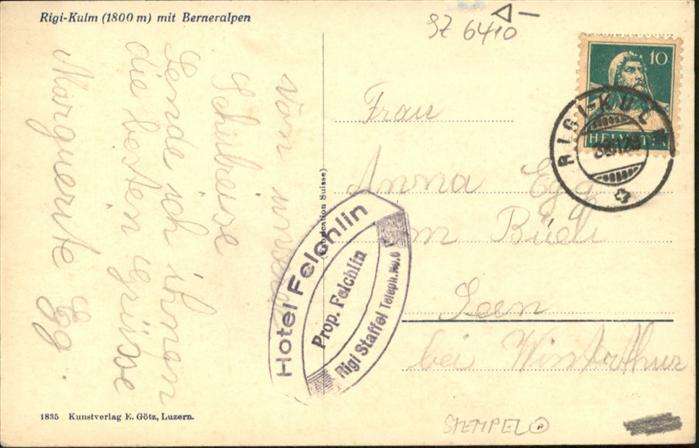 Rigi-Kulm (1800 m) mit Berneralpen
SZ 6410
10
HELVETIA
RIGI-KULM
Von unserer
Schulreise
Sende ich ihnen
die besten Grüsse
Marguerite Egg.
Frau
Anna Egg
im Büeli
Seen
bei Winterthur
Hotel Felchlin
Prop. Felchlin
Rigi Staffel Teleph. No. 6
1835 Kunstverlag E. Götz, Luzern.
STEMPEL